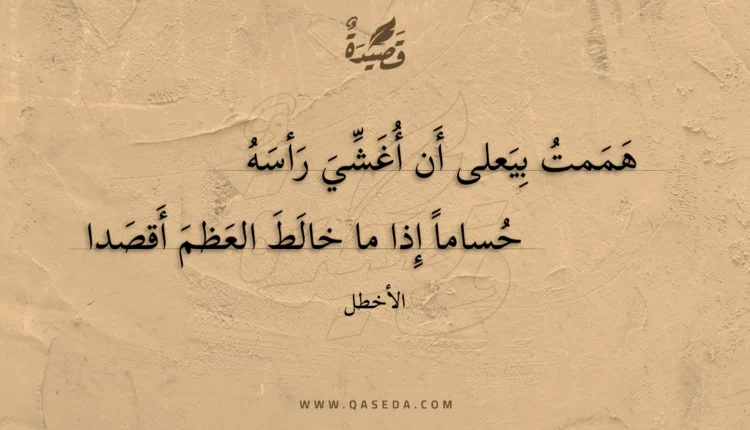 قَصِيدَةٌ
هَمَمتُ بِيَعلى أَن أُغَشِّيَ رَأسَهُ
حُساماً إِذا ما خالَطَ العَظمَ أَقصَدا
الأخطل
WWW.QASEDA.COM